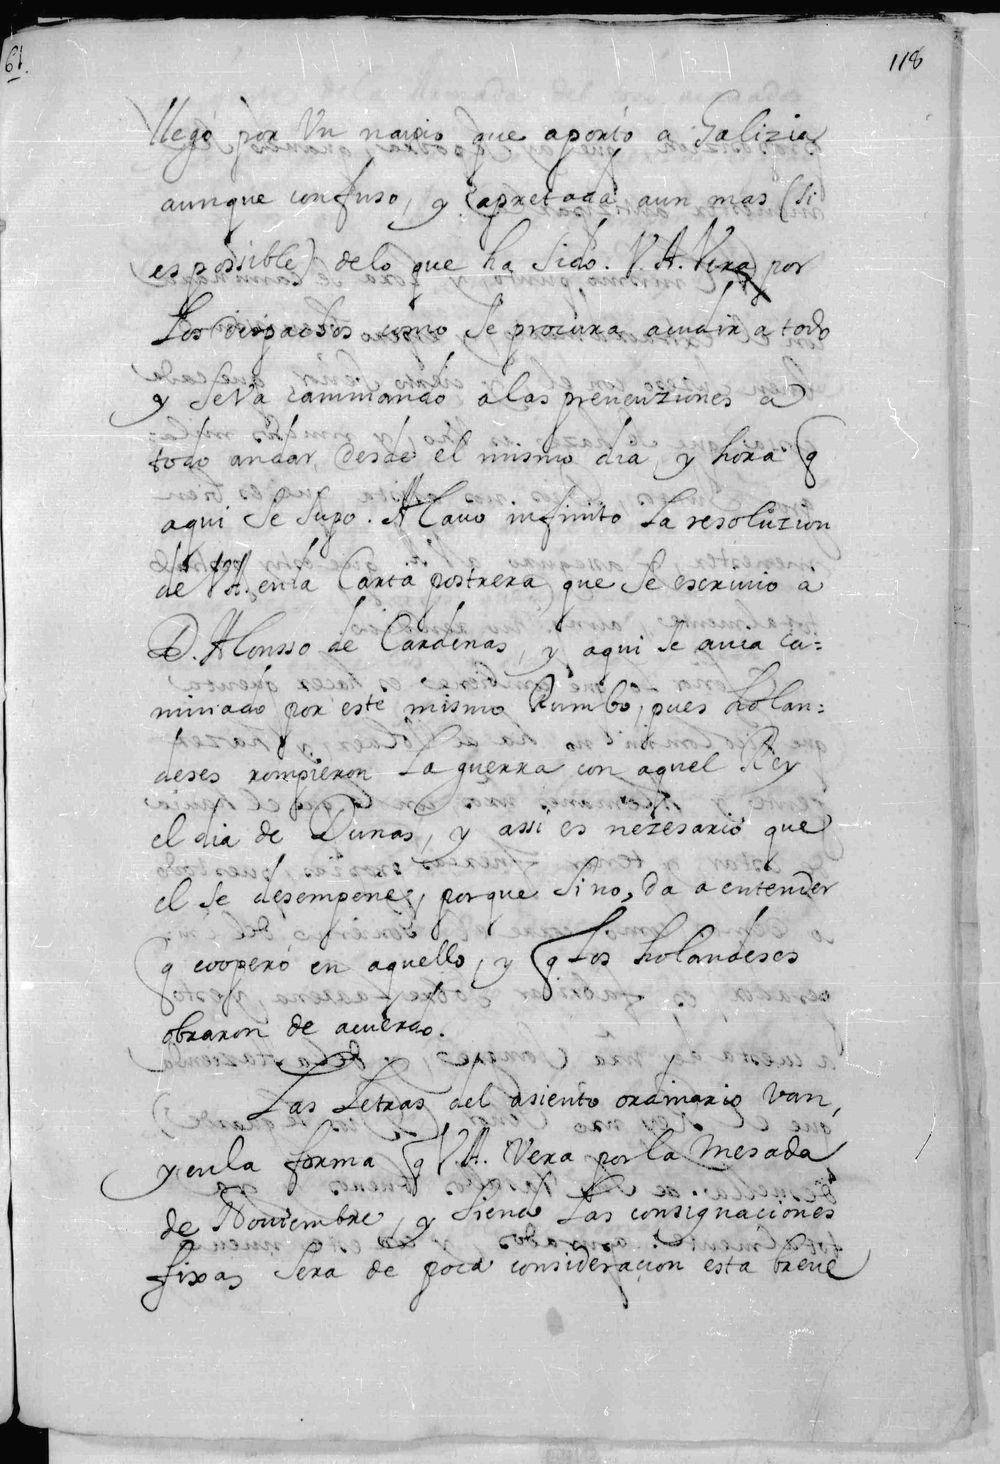 61.
118
llegó por Un navio que aportó a Galizia
aunque confuso, y apretada aun mas (si
es possible) delo que ha sido. V. A. Vera por
Los despachos como se procura acudir a todo
y seva caminando alas prevenziones a
todo andar, desde el mismo dia, y hora q
aqui se supo. Alavo infinito La resoluzion
de V.A. enla Carta postrera que se escrivio a
D. Alonsso de Cardenas, y aqui se avia ca=
minado por este mismo Rumbo, pues holan=
deses rompieron La guerra con aquel Rey
el dia de Dunas, y assi es nezesario que
el se desempeñe, porque sino, da a entender
q cooperó en aquello, y q Los holandeses
obraron de acuerdo.
Las Letras del asiento ordinario van,
y enla forma q V.A. Vera por la mesada
de Noviembre, y siendo Las consignaciones
fixas sera de poca consideraçion esta breve